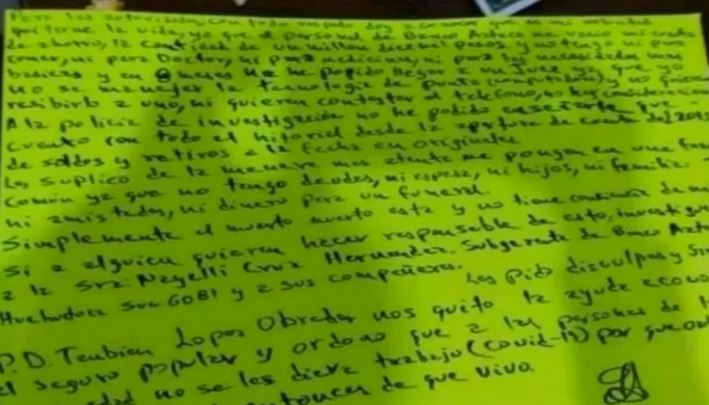 Para las autoridades con todo respeto doy a conocer que es mi voluntad
quitarme la vida, ya que el personal de Banco Azteca me vacio mi cuenta
de ahorro, la cantidad de un millon diez mil pesos y no tengo ni para
comer, ni para Doctor, ni para medicinas, ni para las necesidades mas
basicas y en 8 meses no he podido llegar a un Juez ya que yo
no se manejar la tecnologia de punta (computadora) y no quieren
resibirlo a uno, ni quieren contestar el telefono, no hay consideracion
A la policia de investigación no he podido enseñarle que
cuento con todo el historial desde la apertura de cuenta del
de saldos y retiros a la fecha en originales
Les suplico de la manera mas atenta me pongan en una fosa
comun ya que no tengo deudas, ni esposa, ni hijos, ni familia
ni amistades, ni dinero para un funeral.
Simplemente el muerto muerto esta y no tiene
si a alguien quieren hacer responsable de esto,
a la Sra: Nayelli Cruz Hernandez. Subgerente de Banco
Suc 6081 y a sus compañeros.
Les pido disculpas y
P.D. Tambien Lopez Obrador nos quito la ayuda
el seguro popular y ordeno que a las personas de
no se les diera trabajo (covid-19) por
entonces de que vivo.